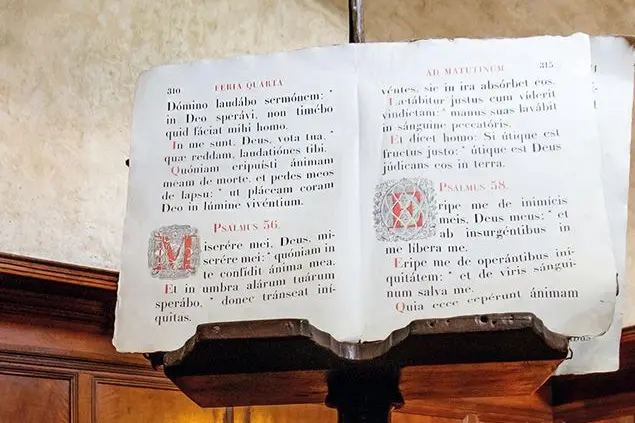 310 FERIA QUARTA
Dómino laudábo sermónem: *
in Deo sperávi, non timébo
quid fáciat mihi homo.
In me sunt, Deus, vota tua, *
quæ reddam, laudatiónes tibi.
Quóniam eripuísti ánimam
meam de morte, et pedes meos
de lapsu: * ut pláceam coram
Deo in lúmine vivéntium.
PSALMUS 56.
Miserére mei, Deus, mi-
serére mei: * quóniam in
te confídit ánima mea.
Et in umbra alárum tuárum
sperábo, * donec tránseat iní-
quitas.
AD MATUTINUM 315
véntes, sic in ira absórbet eos.
Lætábitur justus cum víderit
vindíctam: * manus suas lavábit
in sánguine peccatóris.
Et dicet homo: Si útique est
fructus justo: * útique est Deus
júdicans eos in terra.
PSALMUS 58.
Eripe me de inimícis
meis, Deus meus: * et
ab insurgéntibus in
me líbera me.
Eripe me de operántibus ini-
quitátem: * et de viris sángui-
num salva me.
Quia ecce cepérunt ánimam